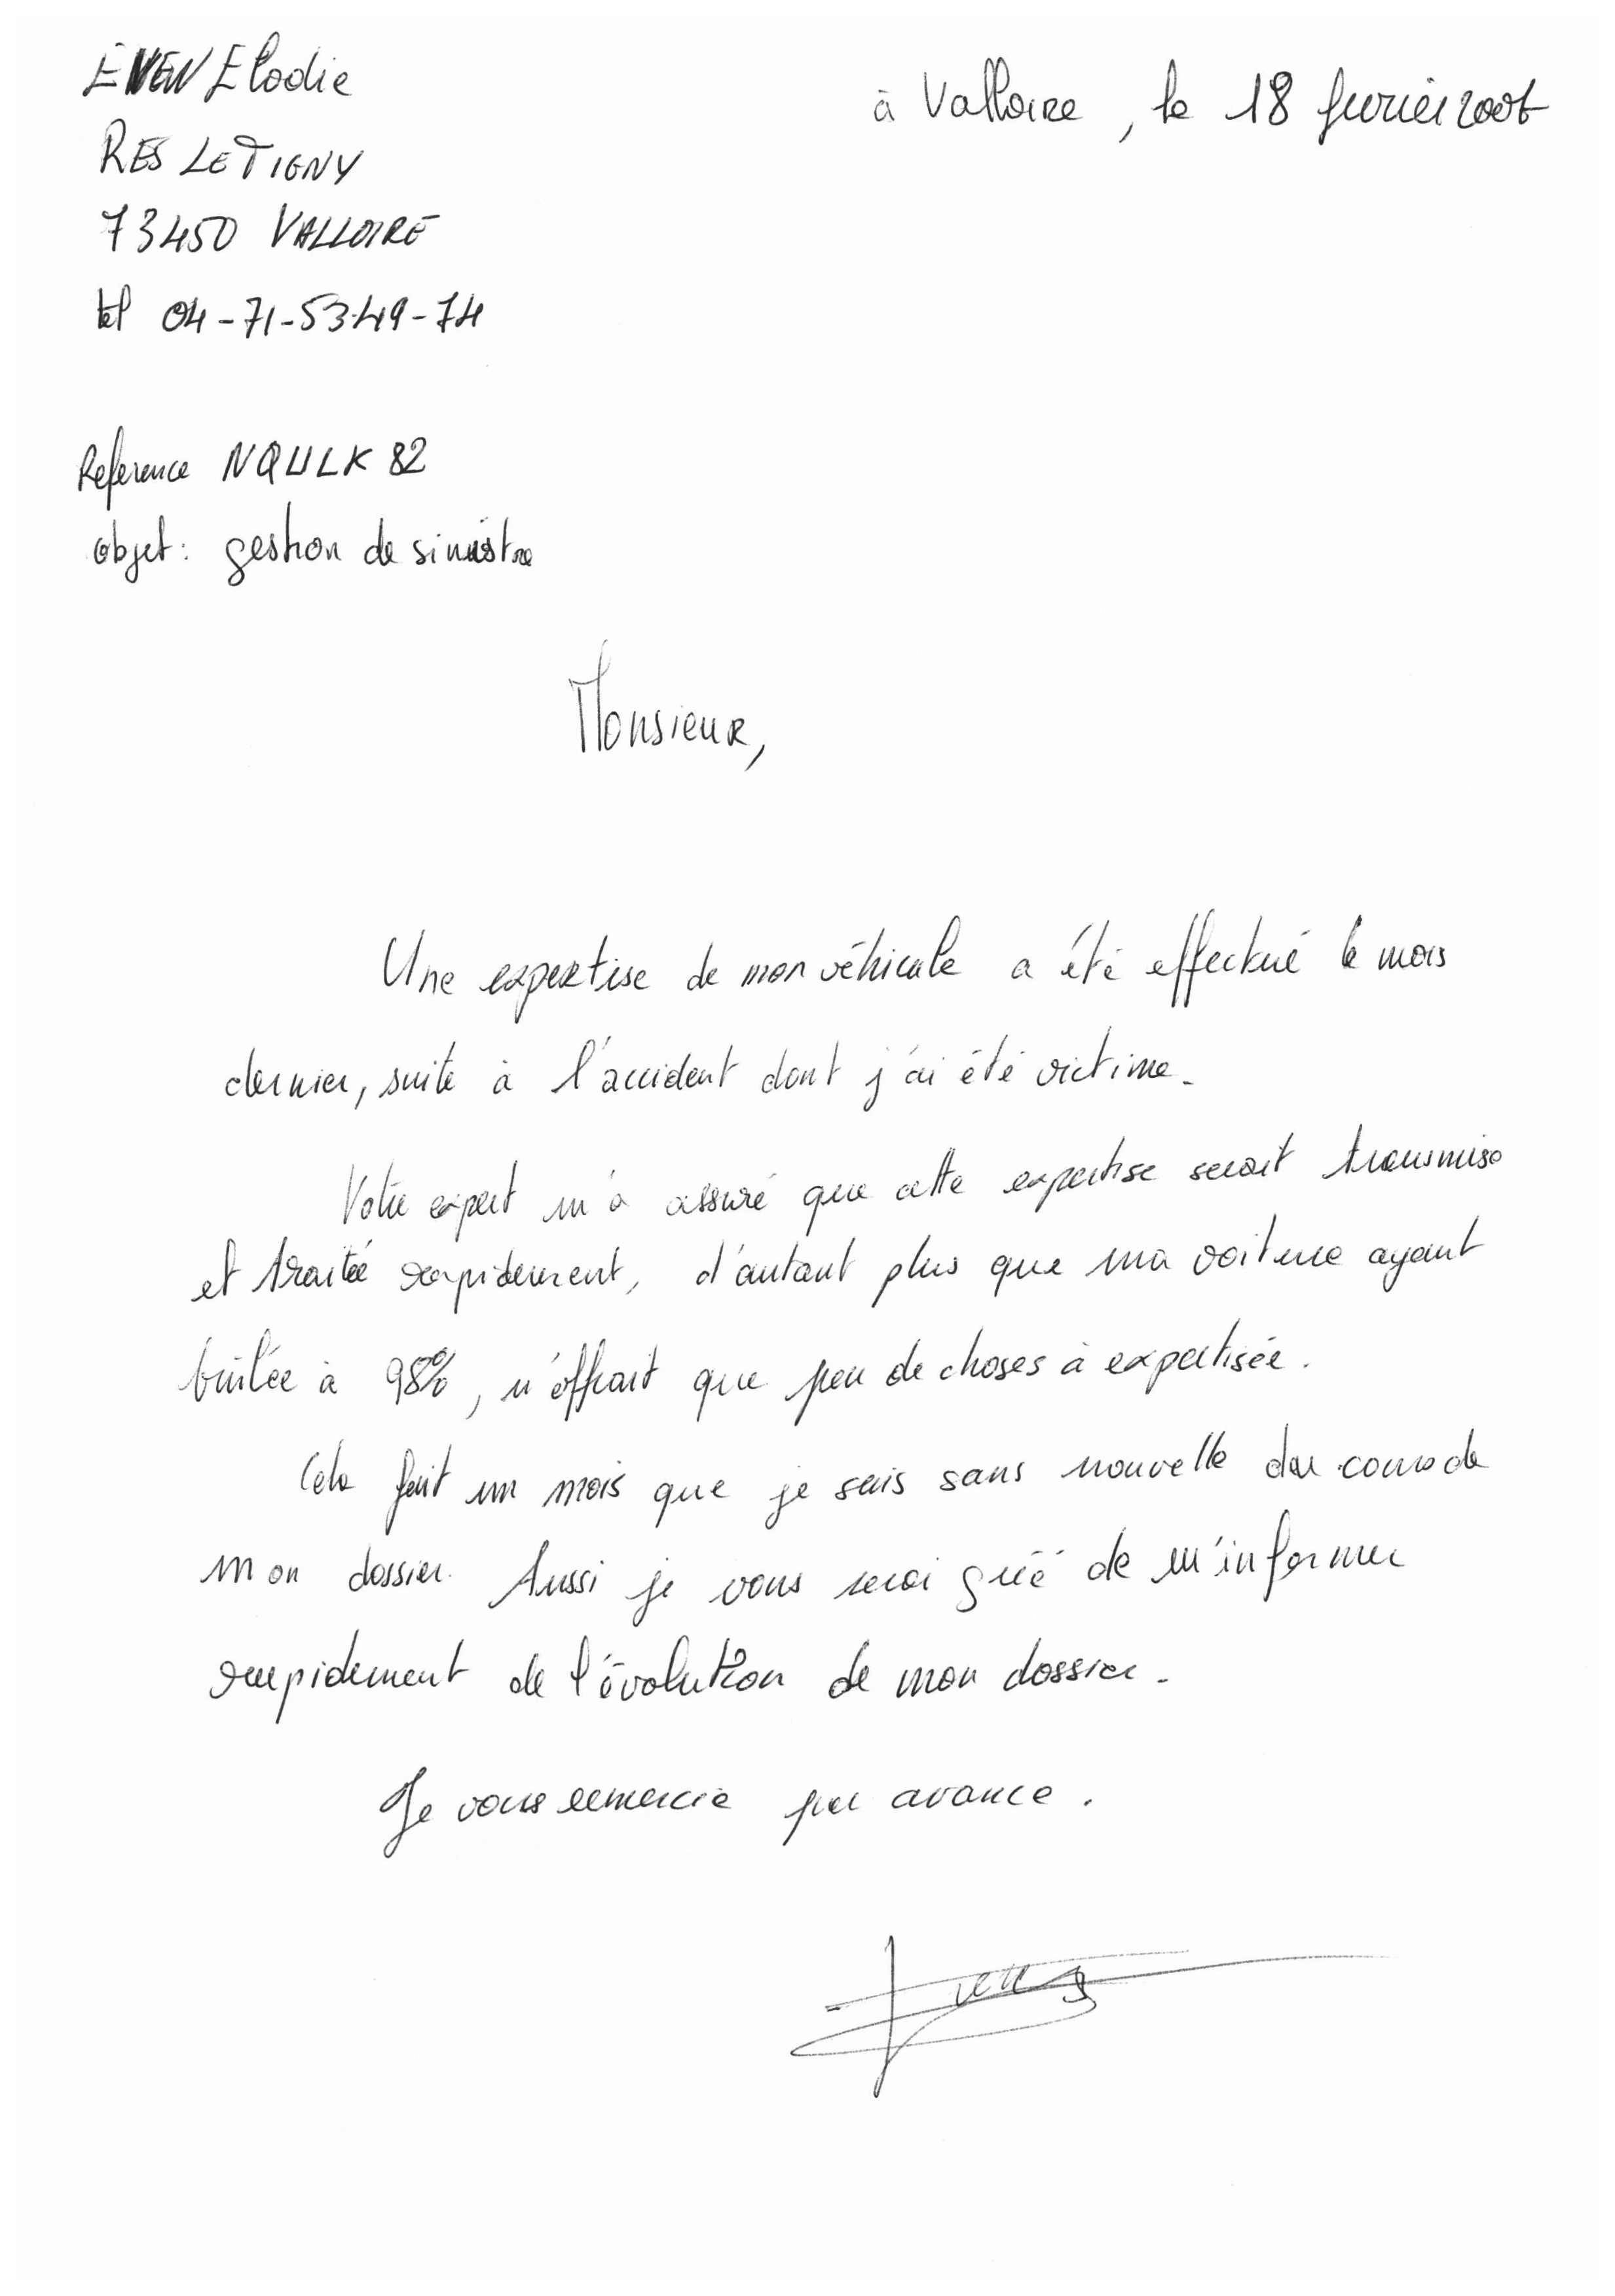 EVEN Elodie
à Valloire, le 18 fevrier 2006
RES LE TIGNY
73450 VALLOIRE
tel 04-71-53-49-74
Reference NQULK 82
objet : gestion de sinistre
Monsieur,
Une expertise de mon véhicule a été effectué le mois
dernier, suite à l'accident dont j'ai été victime.
Votre expert m'a assuré que cette expertise serait transmise
et traitée rapidement, d'autant plus que ma voiture ayant
brûlée à 98%, n'offrait que peu de choses à expertisée.
Cela fait un mois que je suis sans nouvelle du cours de
mon dossier. Aussi je vous serai gréé de m'informer
rapidement de l'évolution de mon dossier.
Je vous remercie par avance.